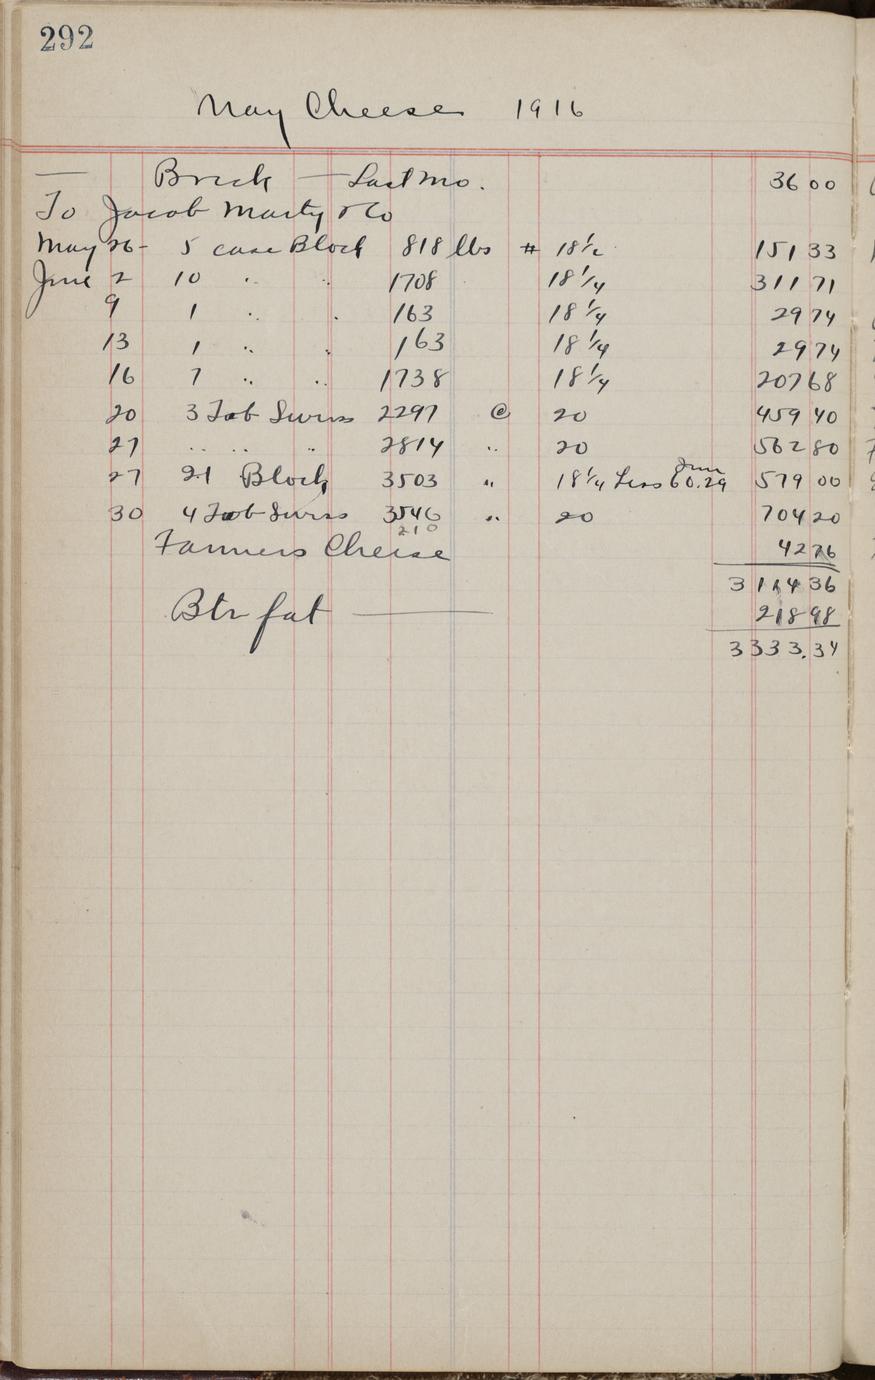 292
May Cheese 1916
— Brick — Last Mo. 36 00
To Jacob Marty & Co
May 26 - 5 case Block 818 lbs # 18 1/2 151 33
June 2 10 " " 1708 18 1/4 311 71
9 1 " " 163 18 1/4 29 74
13 1 " " 163 18 1/4 29 74
16 7 " " 1738 18 1/4 207 68
20 3 Tub Swiss 2297 @ 20 459 40
27 " " " 2814 " 20 562 80
27 21 Block 3503 " 18 1/4 Less 60.29 579 00
30 4 Tub Swiss 3546 " 20 704 20
210
Farmers Cheese 42 76
3 114 36
Btr fat — 218 98
3 333.34